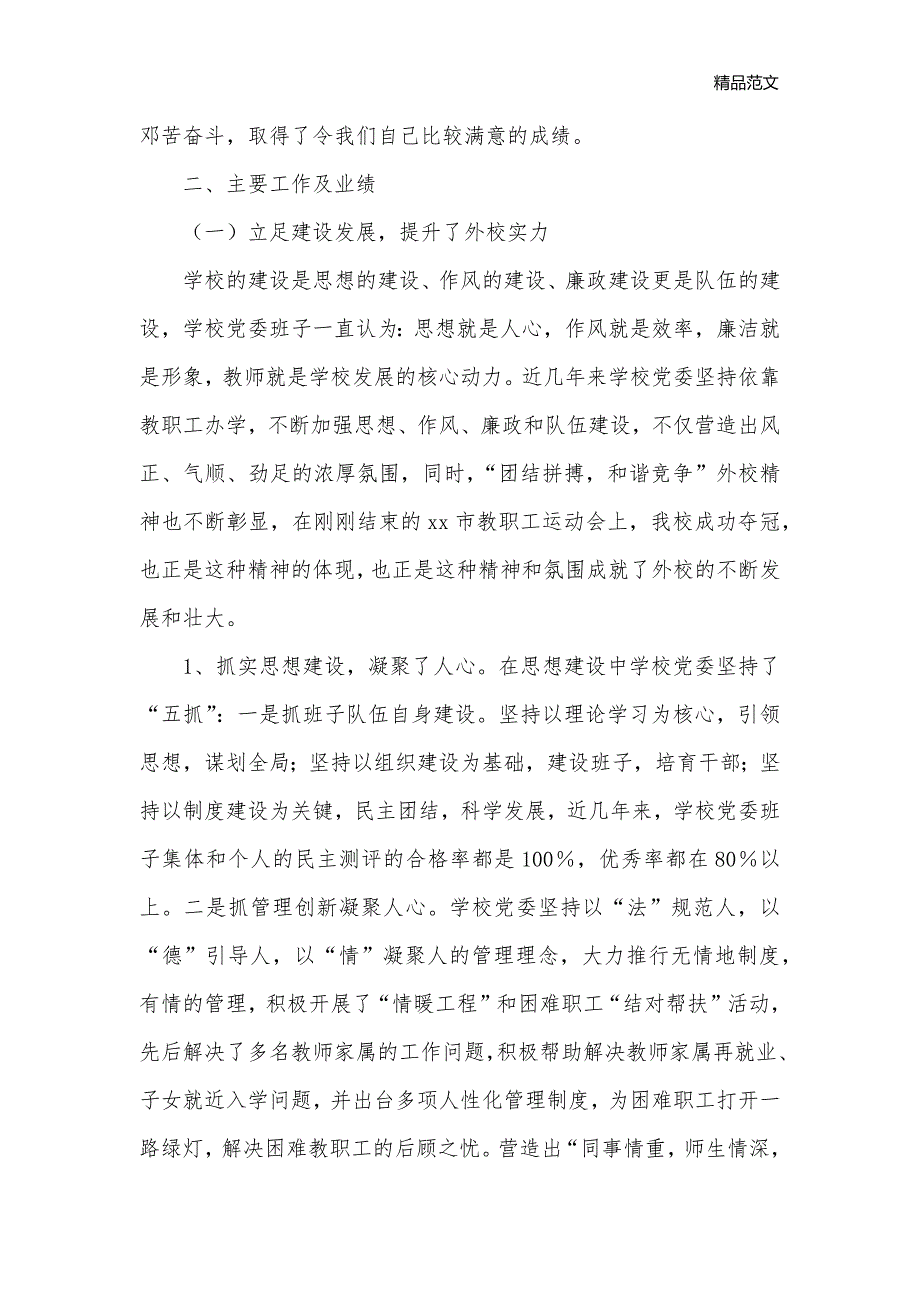 精品范文
邓苦奋斗，取得了令我们自己比较满意的成绩。
二、主要工作及业绩
（一）立足建设发展，提升了外校实力
学校的建设是思想的建设、作风的建设、廉政建设更是队伍的建
设，学校党委班子一直认为：思想就是人心，作风就是效率，廉洁就
是形象，教师就是学校发展的核心动力。近几年来学校党委坚持依靠
教职工办学，不断加强思想、作风、廉政和队伍建设，不仅营造出风
正、气顺、劲足的浓厚氛围，同时，“团结拼搏，和谐竞争”外校精
神也不断彰显，在刚刚结束的 xx 市教职工运动会上，我校成功夺冠，
也正是这种精神的体现，也正是这种精神和氛围成就了外校的不断发
展和壮大。
1、抓实思想建设，凝聚了人心。在思想建设中学校党委坚持了
“五抓”：一是抓班子队伍自身建设。坚持以理论学习为核心，引领
思想，谋划全局；坚持以组织建设为基础，建设班子，培育干部；坚
持以制度建设为关键，民主团结，科学发展，近几年来，学校党委班
子集体和个人的民主测评的合格率都是 100％，优秀率都在 80％以
上。二是抓管理创新凝聚人心。学校党委坚持以“法”规范人，以
“德”引导人，以“情”凝聚人的管理理念，大力推行无情地制度，
有情的管理，积极开展了“情暖工程”和困难职工“结对帮扶”活动，
先后解决了多名教师家属的工作问题，积极帮助解决教师家属再就业、
子女就近入学问题，并出台多项人性化管理制度，为困难职工打开一
路绿灯，解决困难教职工的后顾之忧。营造出“同事情重，师生情深，